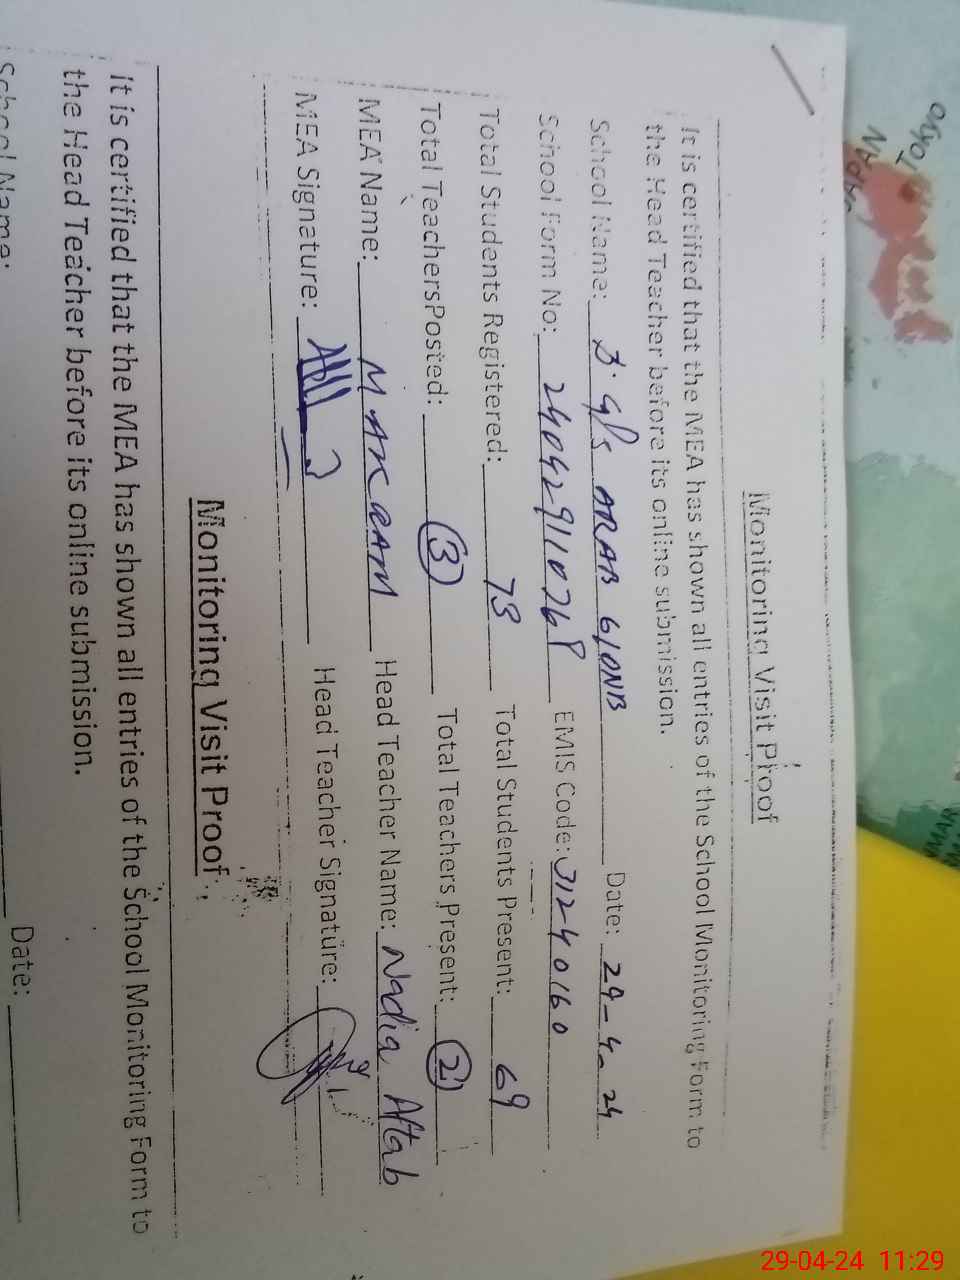 JAPAN
Tokyo
Monitoring Visit Proof
It is certified that the MEA has shown all entries of the School Monitoring Form to
the Head Teacher before its online submission.
School Name: G. G/S ARAB Date: 29-4-24
School Form No: EMIS Code: 31240160
Total Students Registered: 73 Total Students Present: 69
Total TeachersPosted: 3 Total Teachers Present: 2
MEA Name: Head Teacher Name: Nadia Aftab
MEA Signature: Head Teacher Signature:
Monitoring Visit Proof
It is certified that the MEA has shown all entries of the School Monitoring Form to
the Head Teacher before its online submission.
School Name: Date:
29-04-24 11:29